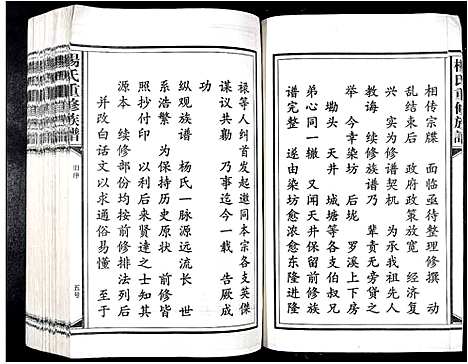 楊氏重修族譜
相传宗牒 面临亟待整理修撰 动
乱结束后 政府政策放宽 民族振
兴 实为修谱契机 为承祖先人
教诲 续修族谱乃 辈责无旁贷之
举 今幸染坊 后垅 罗溪上下房
坳头 天井 城塘等各支伯叔兄
弟心同一辙 又闻天井保留前修族
谱完整 遂由染坊愈浓愈东隆进隆
禄等人纠首发起 邀同本宗各支英傑
谋议共勷 乃事迄今一载 告厥成
功
纵观族谱 杨氏一脉源远流长 世
系浩繁 为保持历史原状 前修皆
照抄付印 以利后来賢達之士知其
源本 续修部份均按前修排法列后
并改白话文以求通俗易懂 至于
楊氏重修族譜
旧序
五号